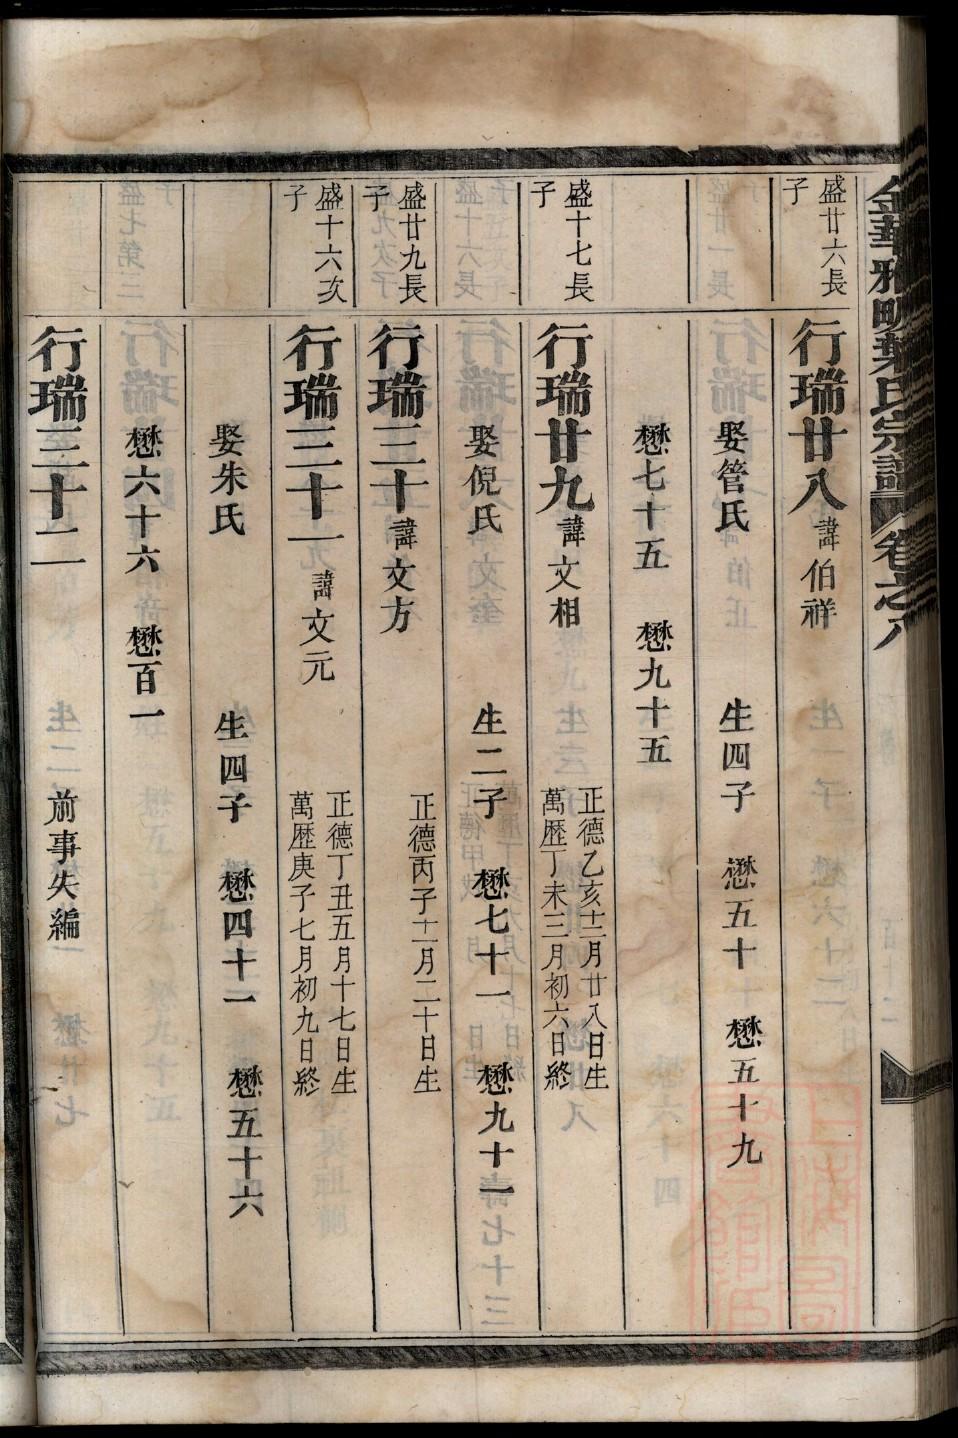 金華雅畈葉氏宗譜 卷之八
盛廿六長子
行瑞廿八 諱伯祥
娶管氏 生四子 懋五十 懋五十九
懋七十五 懋九十五
盛十七長子
行瑞廿九 諱文相 正德乙亥十二月廿八日生
萬歷丁未三月初六日終
娶倪氏 生二子 懋七十一 懋九十一
盛廿九長子
行瑞三十 諱文方 正德丙子十一月二十日生
盛十六次子
行瑞三十一 諱文元 正德丁丑五月十七日生
萬歷庚子七月初九日終
娶朱氏 生四子 懋四十一 懋五十六
懋六十六 懋百一
行瑞三十二 前事失編